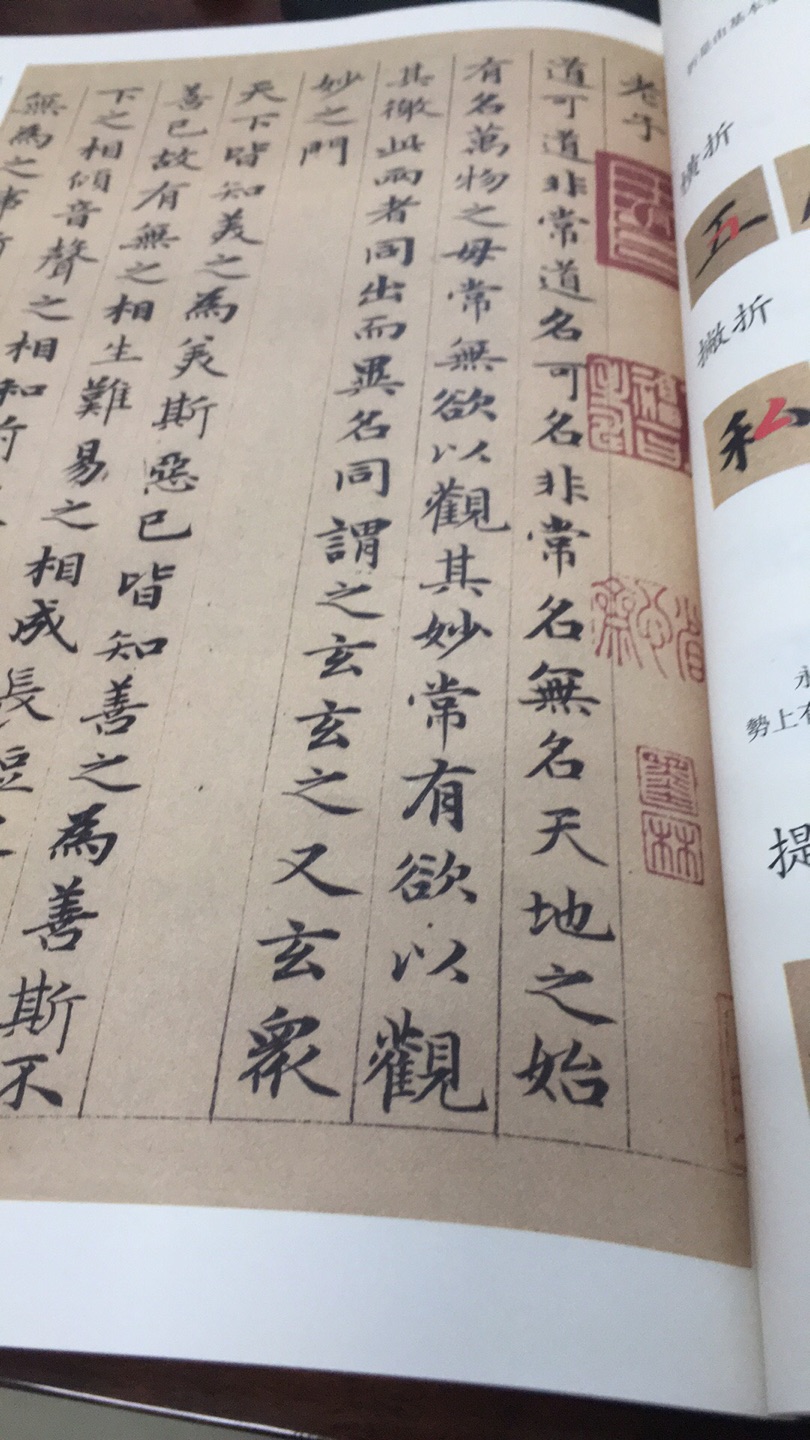 老子
道可道非常道名可名非常名無名天地之始
有名萬物之母常無欲以觀其妙常有欲以觀
其徼此兩者同出而異名同謂之玄玄之又玄衆
妙之門
天下皆知美之為美斯惡已皆知善之為善斯不
善已故有無之相生難易之相成長短之
下之相傾音聲之相和前
無為之事
橫折
五
撇折
私
永
勢上有
提